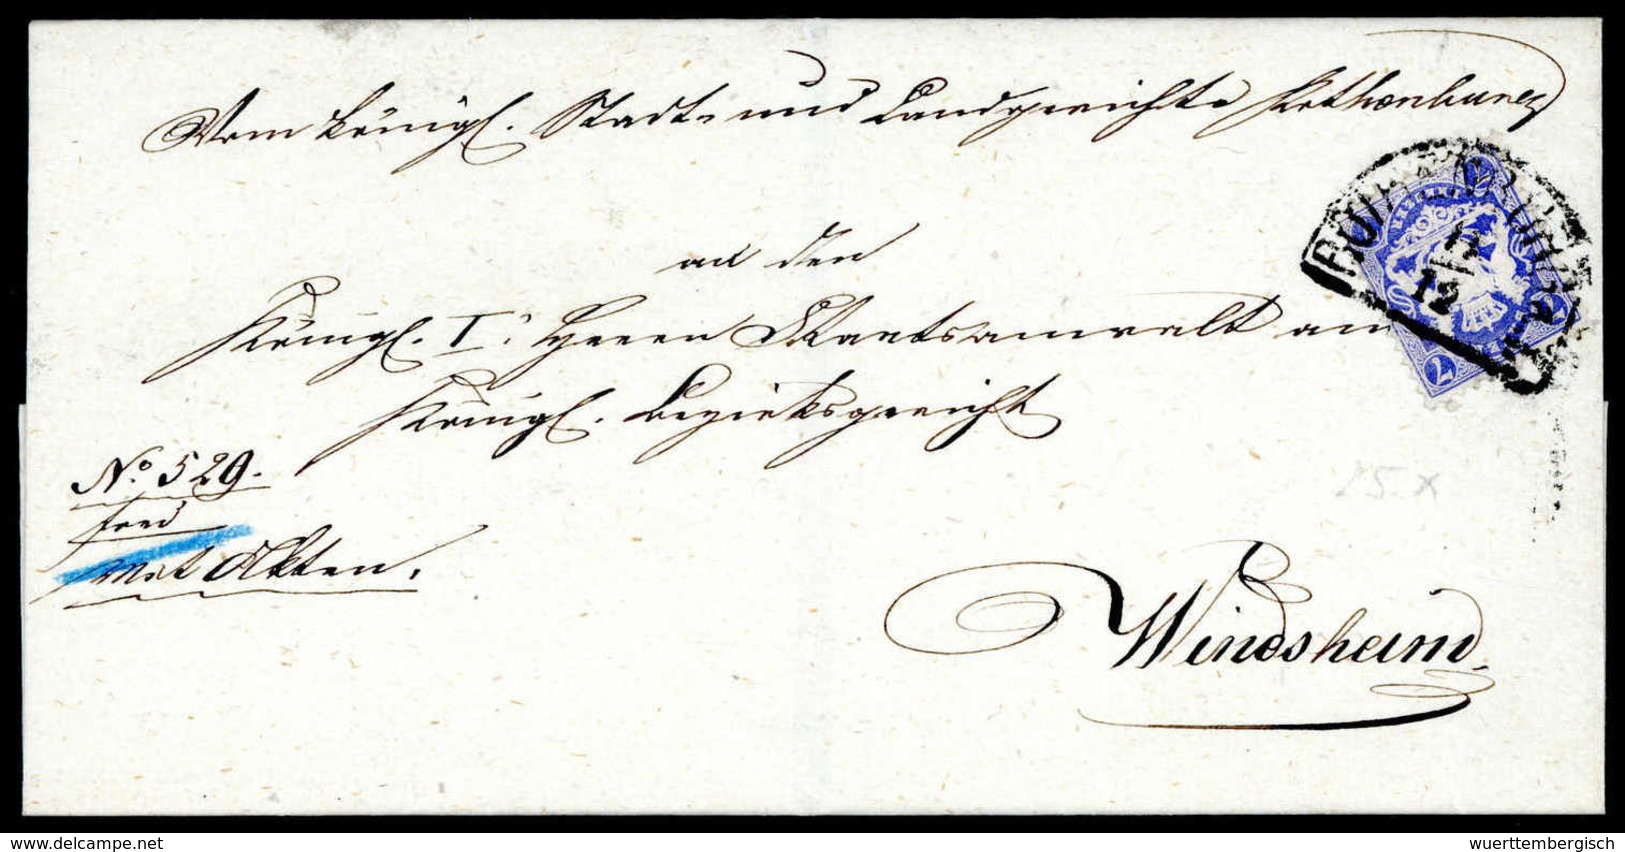 Vom königl. Stadt- und Landgerichte Rothenburg
an den
Königl. I. Herrn Staatsanwalt am
Königl. Bezirksgericht
No. 529.
frei
mit Akten.
Windsheim.
ROTHENBURG
12
7
7
25. x
delcampe.net
wuerttembergisch